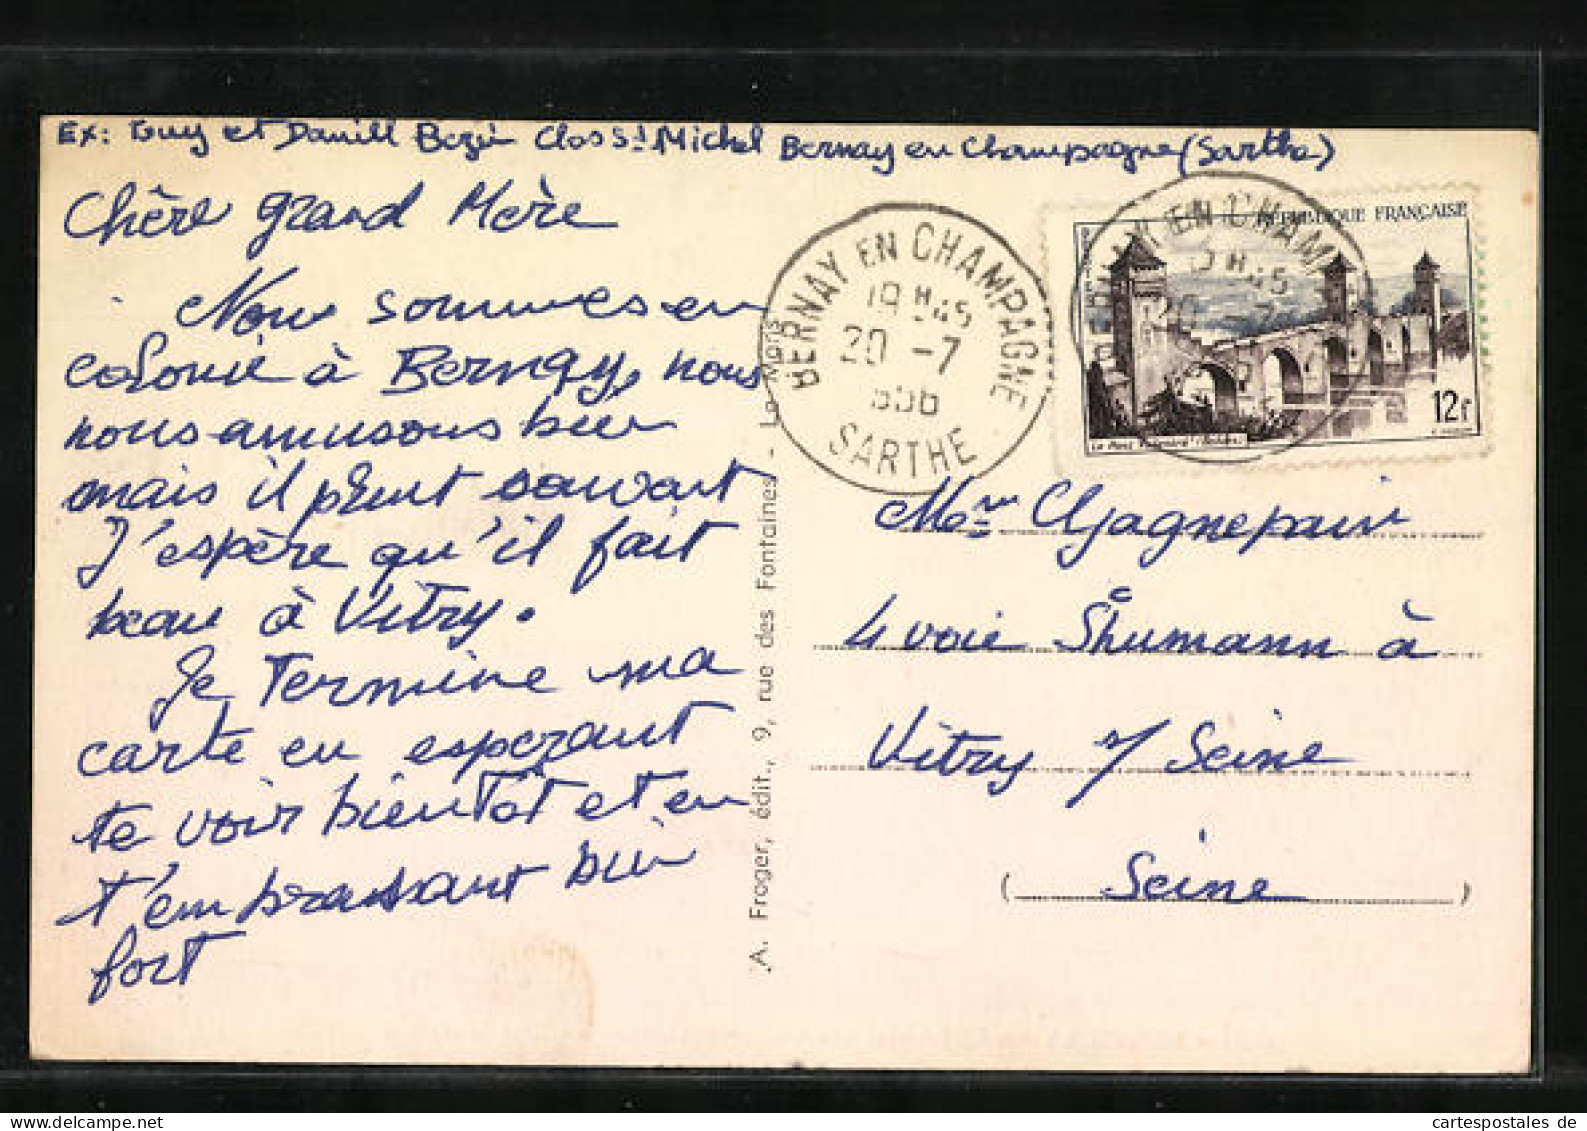 Ex: Guy et Daniel Bezin Clos St Michel Bernay en Champagne (Sarthe)
Chère grand Mère
Nous sommes en
colonie à Bernay, nous
nous amusons bien
mais il pleut souvent
J'espère qu'il fait
beau à Vitry.
Je termine ma
carte en esperant
te voir bientôt et en
t'embrassant bien
fort
A. Froger, édit., 9, rue des Fontaines - Le Mans
BERNAY EN CHAMPAGNE
18H45
20 -7
SARTHE
RÉPUBLIQUE FRANÇAISE
12F
Le Pont Valentré (Cahors)
Mme Gagnepain
4 voie Shumann à
Vitry s/ Seine
(Seine)
cartespostales de